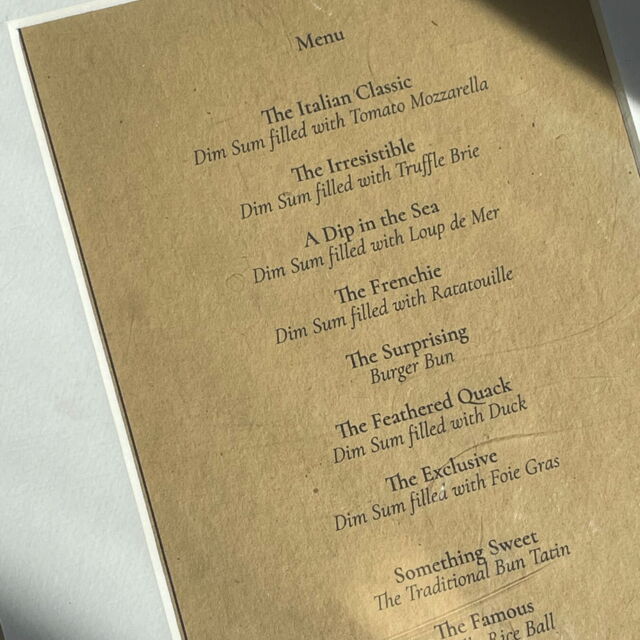 Menu
The Italian Classic
Dim Sum filled with Tomato Mozzarella
The Irresistible
Dim Sum filled with Truffle Brie
A Dip in the Sea
Dim Sum filled with Loup de Mer
The Frenchie
Dim Sum filled with Ratatouille
The Surprising
Burger Bun
The Feathered Quack
Dim Sum filled with Duck
The Exclusive
Dim Sum filled with Foie Gras
Something Sweet
The Traditional Bun Tatin
The Famous
Rice Ball